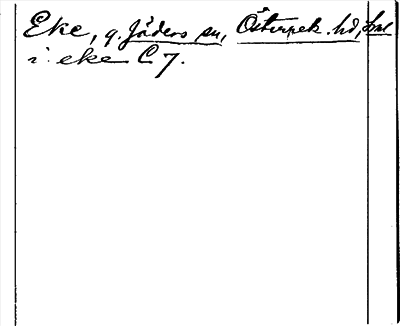 Eke, g. Jäders sn, Österrek. hd, Srm
i eke C 7.